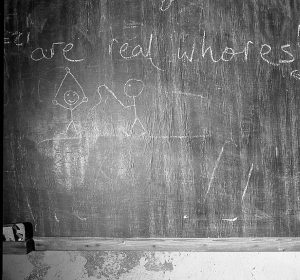 are real whores!